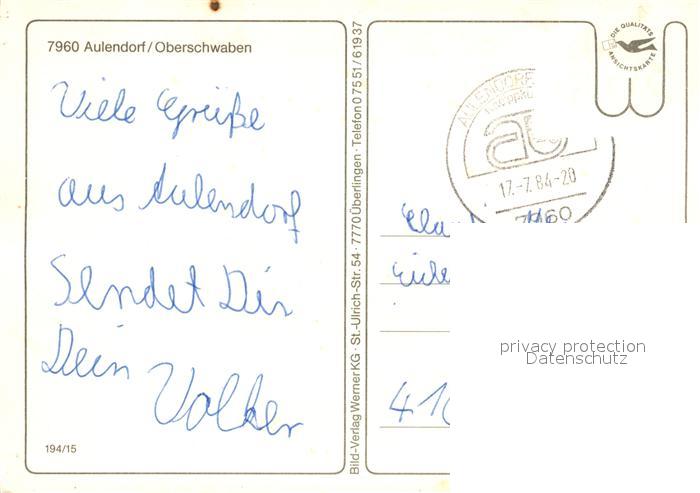 7960 Aulendorf/Oberschwaben
Viele Grüße
aus Aulendorf
Sendet Dir
Dein
Volker
194/15
Bild-Verlag Werner KG · St.-Ulrich-Str. 54 · 7770 Überlingen · Telefon 0 75 51/6 19 37
DIE QUALITÄTS
ANSICHTSKARTE
AULENDORF
au
17.-7.84-20
7960
privacy protection
Datenschutz